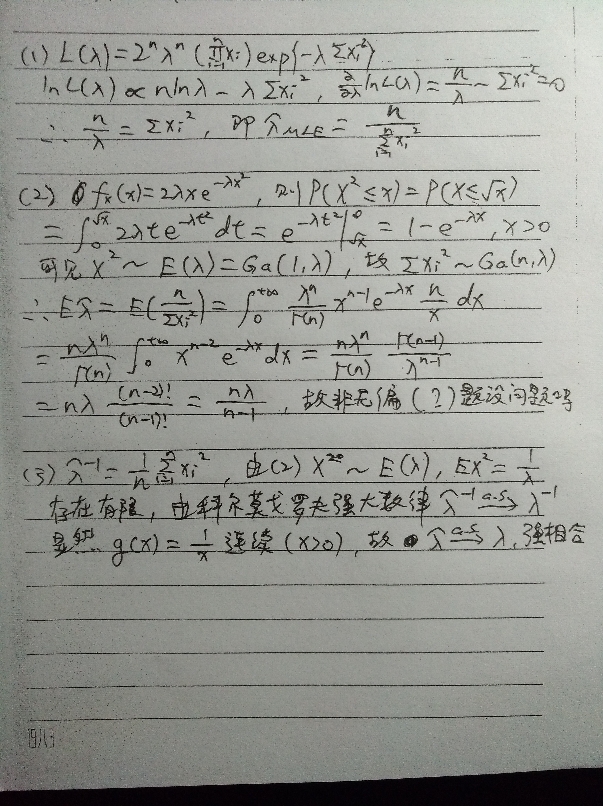 (1) L(λ)=2ⁿλⁿ(∏ᵢ₌₁ⁿxᵢ)exp{-λΣxᵢ²}
lnL(λ)∝nlnλ-λΣxᵢ², ∂/∂λ lnL(λ)=n/λ-Σxᵢ²=0
∴ n/λ=Σxᵢ², 即 λ̂MLE=n/Σᵢ₌₁ⁿxᵢ²
(2) fₓ(x)=2λxe^{-λx²}, 则P(X²≤x)=P(X≤√x)
=∫₀^{√x}2λte^{-λt²}dt=e^{-λt²}|_{√x}^0=1-e^{-λx}, x>0
可见X²~E(λ)=Ga(1,λ), 故Σxᵢ²~Ga(n,λ)
∴Eλ̂=E(n/Σxᵢ²)=∫₀^{+∞} λⁿ/Γ(n) x^{n-1}e^{-λx} n/x dx
=nλⁿ/Γ(n) ∫₀^{+∞}x^{n-2}e^{-λx}dx=nλⁿ/Γ(n) Γ(n-1)/λ^{n-1}
=nλ (n-2)!/(n-1)!=nλ/(n-1), 故非无偏(?)题设问题吗
(3) λ̂⁻¹=1/n Σᵢ₌₁ⁿxᵢ², 由(2) X²~E(λ), EX²=1/λ
存在有限, 由科尔莫戈罗夫强大数律λ̂⁻¹ a.s.→ λ⁻¹
显然 g(x)=1/x 连续(x>0), 故 λ̂ a.s.→ λ, 强相合